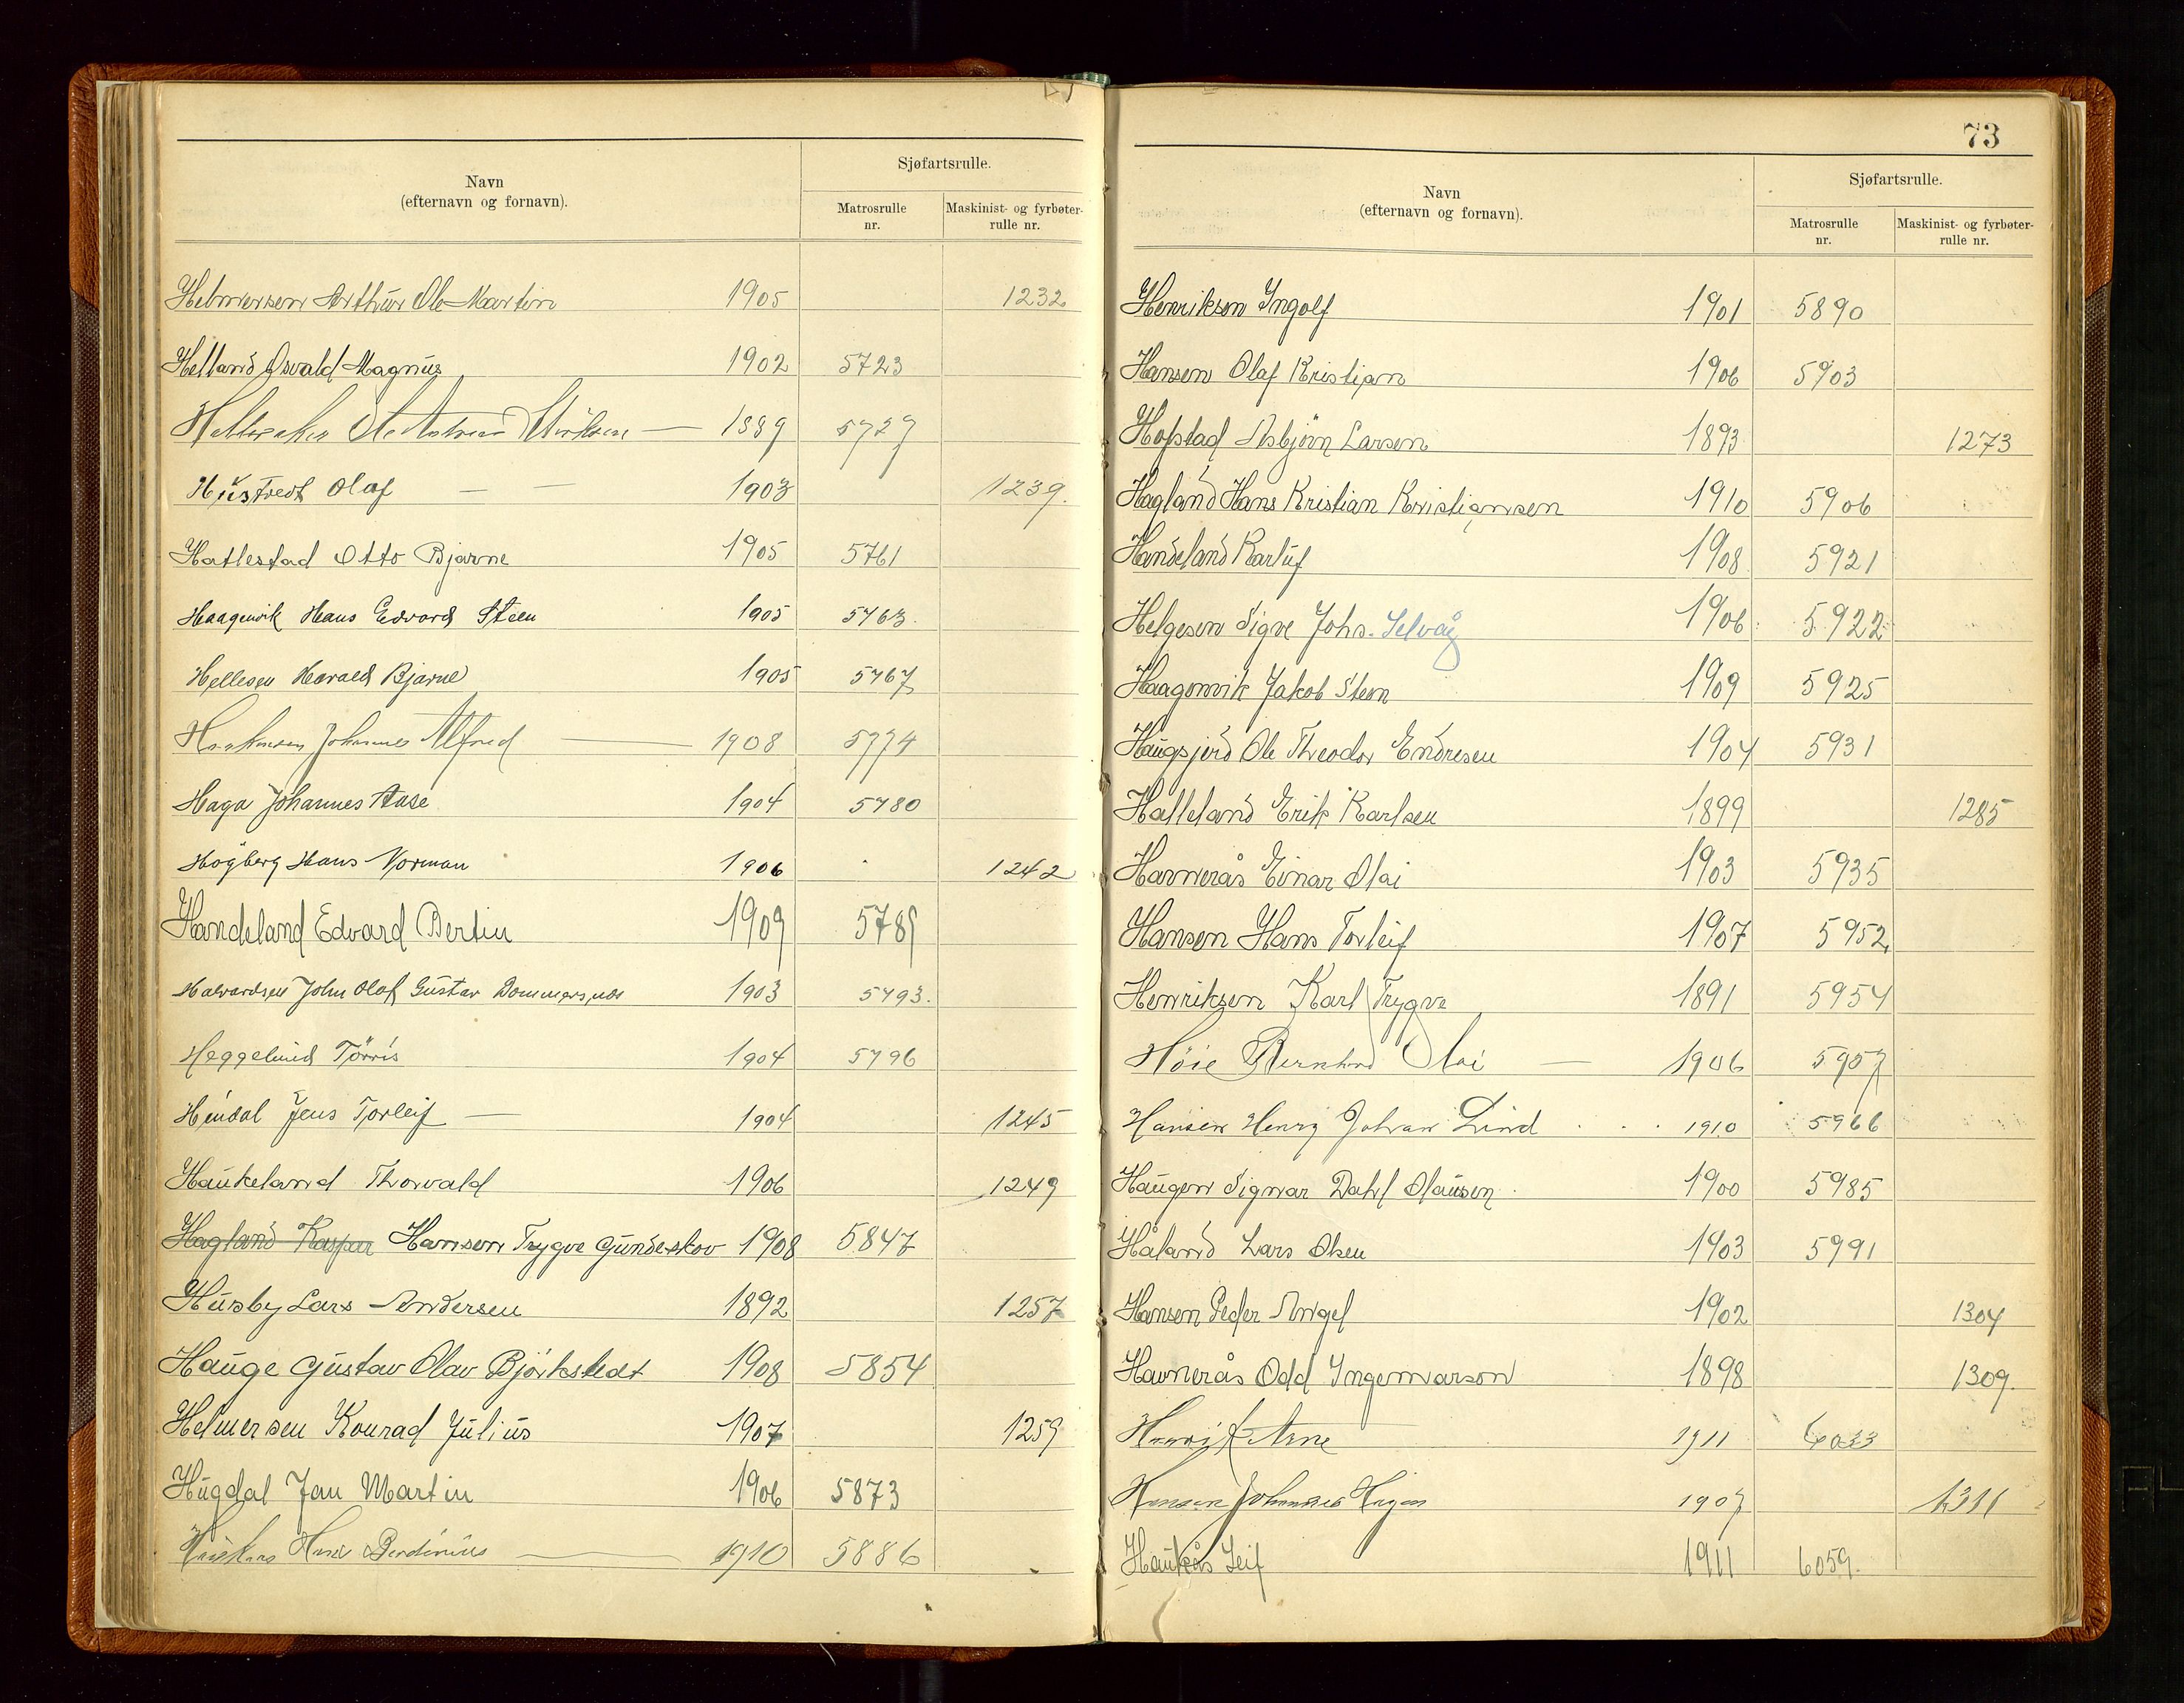 Sjøfartsrulle.
Navn
(efternavn og fornavn).
Matrosrulle
nr.
Maskinist- og fyrbøter-
rulle nr.
Helmersen Arthur Ole Martin 1905 1232
Helland Osvald Magnus 1902 5723
Ole 1889 5729
Hustvedt Olaf 1903 1239.
Hatlestad Otto Bjarne 1905 5761
Haagenvik Hans Edvard Steen 1905 5763.
Hellesen Harald Bjarne 1905 5767
Johannes Alfred 1908 5774
Haga Johannes Aase 1904 5780
Högberg Hans Norman 1906 1242
Handeland Edvard Bertin 1909 5789
Halvardsen John Olaf Gustav 1903 5793.
Heggelund Törris 1904 5796
Jens Torleif 1904 1245
Haukeland Thorvald 1906 1249
Hagland Kaspar Hansen Trygve Gundeskov 1908 5847
Husby Lars Andersen 1892 1257
Hauge Gustav Olav Björkstedt 1908 5854
Helmersen Konrad Julius 1907 1259
Hugdal Jan Martin 1906 5873
Hans 1910 5886
73
Sjøfartsrulle.
Navn
(efternavn og fornavn).
Matrosrulle
nr.
Maskinist- og fyrbøter-
rulle nr.
Henriksen Ingolf 1901 5890
Hansen Olaf Kristian 1906 5903
Hofstad Asbjörn Larsen 1893 1273
Hagland Hans Kristian Kristiansen 1910 5906
Handeland Karluf 1908 5921
Helgesen Sigve Johs. Selvåg 1906 5922
Haagenvik Jakob Steen 1909 5925
Haugsjerd Ole Theodor Endresen 1904 5931
Halleland Erik Karlsen 1899 1285
Havnerås Einar Olai 1903 5935
Hansen Hans Torleif 1907 5952
Henriksen Karl Trygve 1891 5954
Höie Bernhard Olai 1906 5957
Hansen Henry Johan Lind 1910 5966
Haugen Sigvar Dahl Olausen 1900 5985
Håland Lars Olsen 1903 5991
Hansen Peder Angel 1902 1304
Havnerås Odd Ingemarson 1898 1309.
Arne 1911 6033
Hansen Johannes 1907 1311
Haukås Leif 1911 6059.